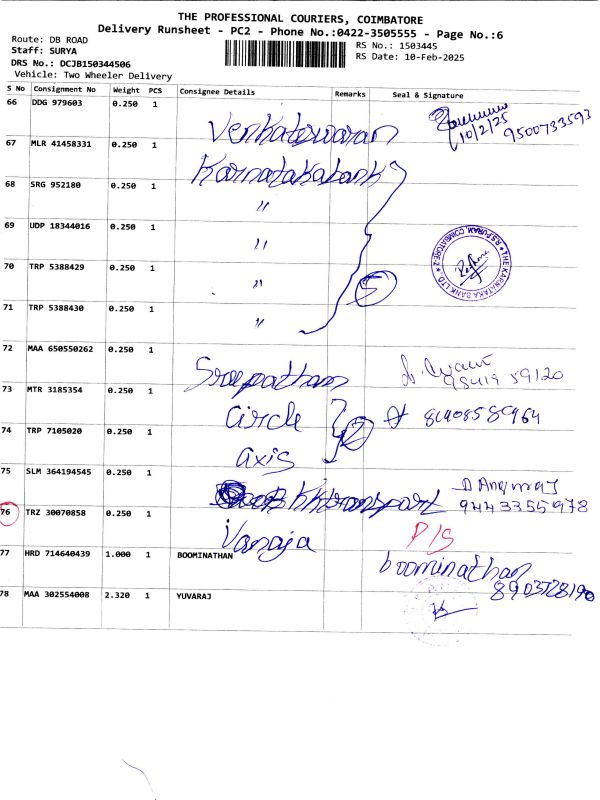 THE PROFESSIONAL COURIERS, COIMBATORE
Delivery Runsheet - PC2 - Phone No.:0422-3505555 - Page No.:6
Route: DB ROAD
Staff: SURYA
DRS No.: DCJB150344506
Vehicle: Two Wheeler Delivery
RS No.: 1503445
RS Date: 10-Feb-2025
S No Consignment No Weight PCS Consignee Details Remarks Seal & Signature
66 DDG 979603 0.250 1 Venkateswaran 10/2/25 9500733593
67 MLR 41458331 0.250 1 Karnatakabank
68 SRG 952180 0.250 1 "
69 UDP 18344016 0.250 1 "
70 TRP 5388429 0.250 1 " 5
71 TRP 5388430 0.250 1 "
THE KARNATAKA BANK LTD. R.S.PURAM, COIMBATORE-2
72 MAA 650550262 0.250 1 Sreepatham 98419 59120
73 MTR 3185354 0.250 1 Circle 2 8190858964
74 TRP 7105020 0.250 1 axis
75 SLM 364194545 0.250 1 kk transport 9443355978
76 TRZ 30070858 0.250 1 Vanaja P/S
77 HRD 714640439 1.000 1 BOOMINATHAN boominathan
8903728190
78 MAA 302554008 2.320 1 YUVARAJ